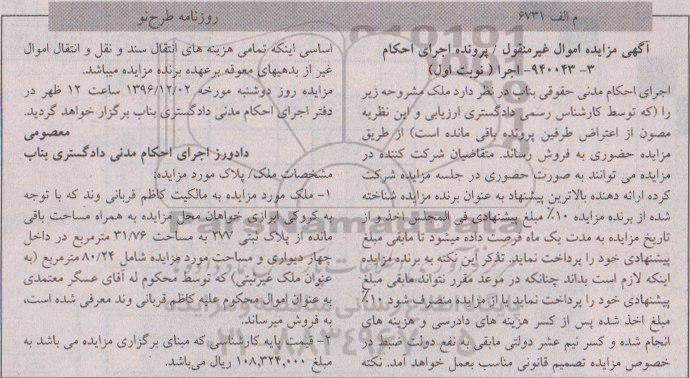 م الف ۶۷۳۱
روزنامه طرح‌نو
آگهی مزایده اموال غیرمنقول / پرونده اجرای احکام
۳- ۹۴۰۰۴۳- اجرا ( نوبت اول)
اجرای احکام مدنی حقوقی بناب در نظر دارد ملک مشروحه زیر
را (که توسط کارشناس رسمی دادگستری ارزیابی و این نظریه
مصون از اعتراض طرفین پرونده باقی مانده است) از طریق
مزایده حضوری به فروش رساند. متقاضیان شرکت کننده در
مزایده می توانند به صورت حضوری در جلسه مزایده شرکت
کرده ارائه دهنده بالاترین پیشنهاد به عنوان برنده مزایده شناخته
شده از برنده مزایده ۱۰٪ مبلغ پیشنهادی فی المجلس اخذ و از
تاریخ مزایده به مدت یک ماه فرصت داده میشود تا مابقی مبلغ
پیشنهادی خود را پرداخت نماید. تذکر این نکته به برنده مزایده
اینکه لازم است بداند چنانکه در موعد مقرر نتواند مابقی مبلغ
پیشنهادی خود را پرداخت نماید یا از مزایده منصرف شود ۱۰٪
مبلغ اخذ شده پس از کسر هزینه های دادرسی و هزینه های
انجام شده و کسر نیم عشر دولتی مابقی به نفع دولت ضبط در
خصوص مزایده تصمیم قانونی مناسب بعمل خواهد آمد. نکته
اساسی اینکه تمامی هزینه های انتقال سند و نقل و انتقال اموال
غیر از بدهیهای معوقه برعهده برنده مزایده میباشد.
مزایده روز دوشنبه مورخه ۱۳۹۶/۱۲/۰۲ ساعت ۱۲ ظهر در
دفتر اجرای احکام مدنی دادگستری بناب برگزار خواهد گردید.
معصومی
دادورز اجرای احکام مدنی دادگستری بناب
مشخصات ملک/ پلاک مورد مزایده:
۱- ملک مورد مزایده به مالکیت کاظم قربانی وند که با توجه
به کروکی ابرازی خواهان محل مزایده به همراه مساحت باقی
مانده از پلاک ثبتی ۲۷۷ به مساحت ۳۱/۷۶ مترمربع در داخل
چهار دیواری و مساحت مورد مزایده شامل ۸۰/۲۴ مترمربع (به
عنوان ملک غیرثبتی) که توسط محکوم له آقای عسگر معتمدی
به عنوان اموال محکوم علیه کاظم قربانی وند معرفی شده است،
به فروش میرساند.
۲- قیمت پایه کارشناسی که مبنای برگزاری مزایده می باشد به
مبلغ ۱۰۸,۳۲۴,۰۰۰ ریال می‌باشد.
ParsNamadData